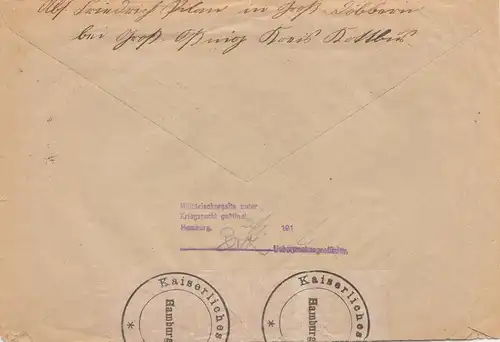 Abs Friedrich Pilan in Groß-Döbbern
bei Groß-Oßnig Kreis Kottbus
Militärischerseits unter
Kriegsrecht geöffnet
Hamburg, 191
Ueberwachungsoffizier.
Kaiserliches
Hamburg
*
Kaiserliches
Hamburg
*